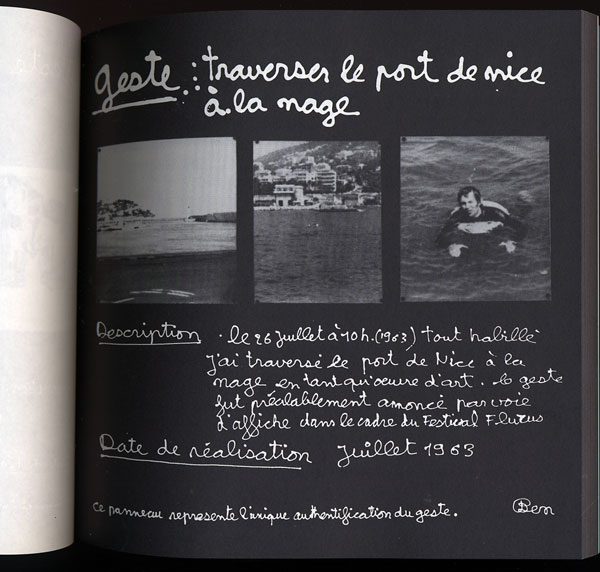 geste : traverser le port de nice
à la nage
Description . le 26 Juillet à 10h. (1963) tout habillé
j'ai traversé le port de Nice à la
nage en tant qu'oeuvre d'art. le geste
fut préalablement annoncé par voie
d'affiche dans le cadre du Festival Fluxus
Date de réalisation Juillet 1963
Ce panneau represente l'unique authentification du geste.
Ben